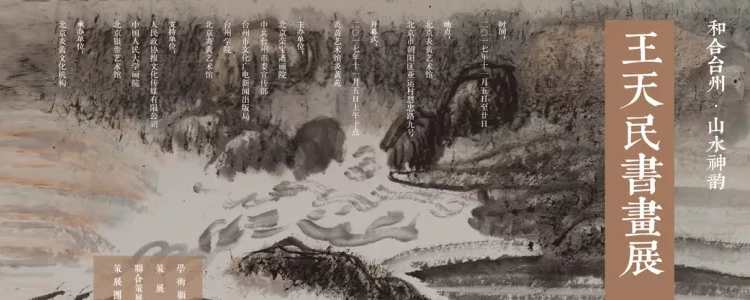 和合台州·山水神韵
王天民書畫展
时间:
二〇一七年十一月五日至廿日
地点:
北京炎黄艺术馆
北京市朝阳区亚运村慧忠路九号
开幕式:
二〇一七年十一月五日上午十点
炎黄艺术馆炎黄苑
主办单位:
北京荣宝斋画院
中共台州市委宣传部
台州市文化广电新闻出版局
台州学院
北京炎黄艺术馆
支持单位:
人民政协报文化传媒有限公司
中国人民大学画院
北京银帝艺术馆
承办单位:
北京炎黄文化机构
學術顧
策展
聯合策展
策展團